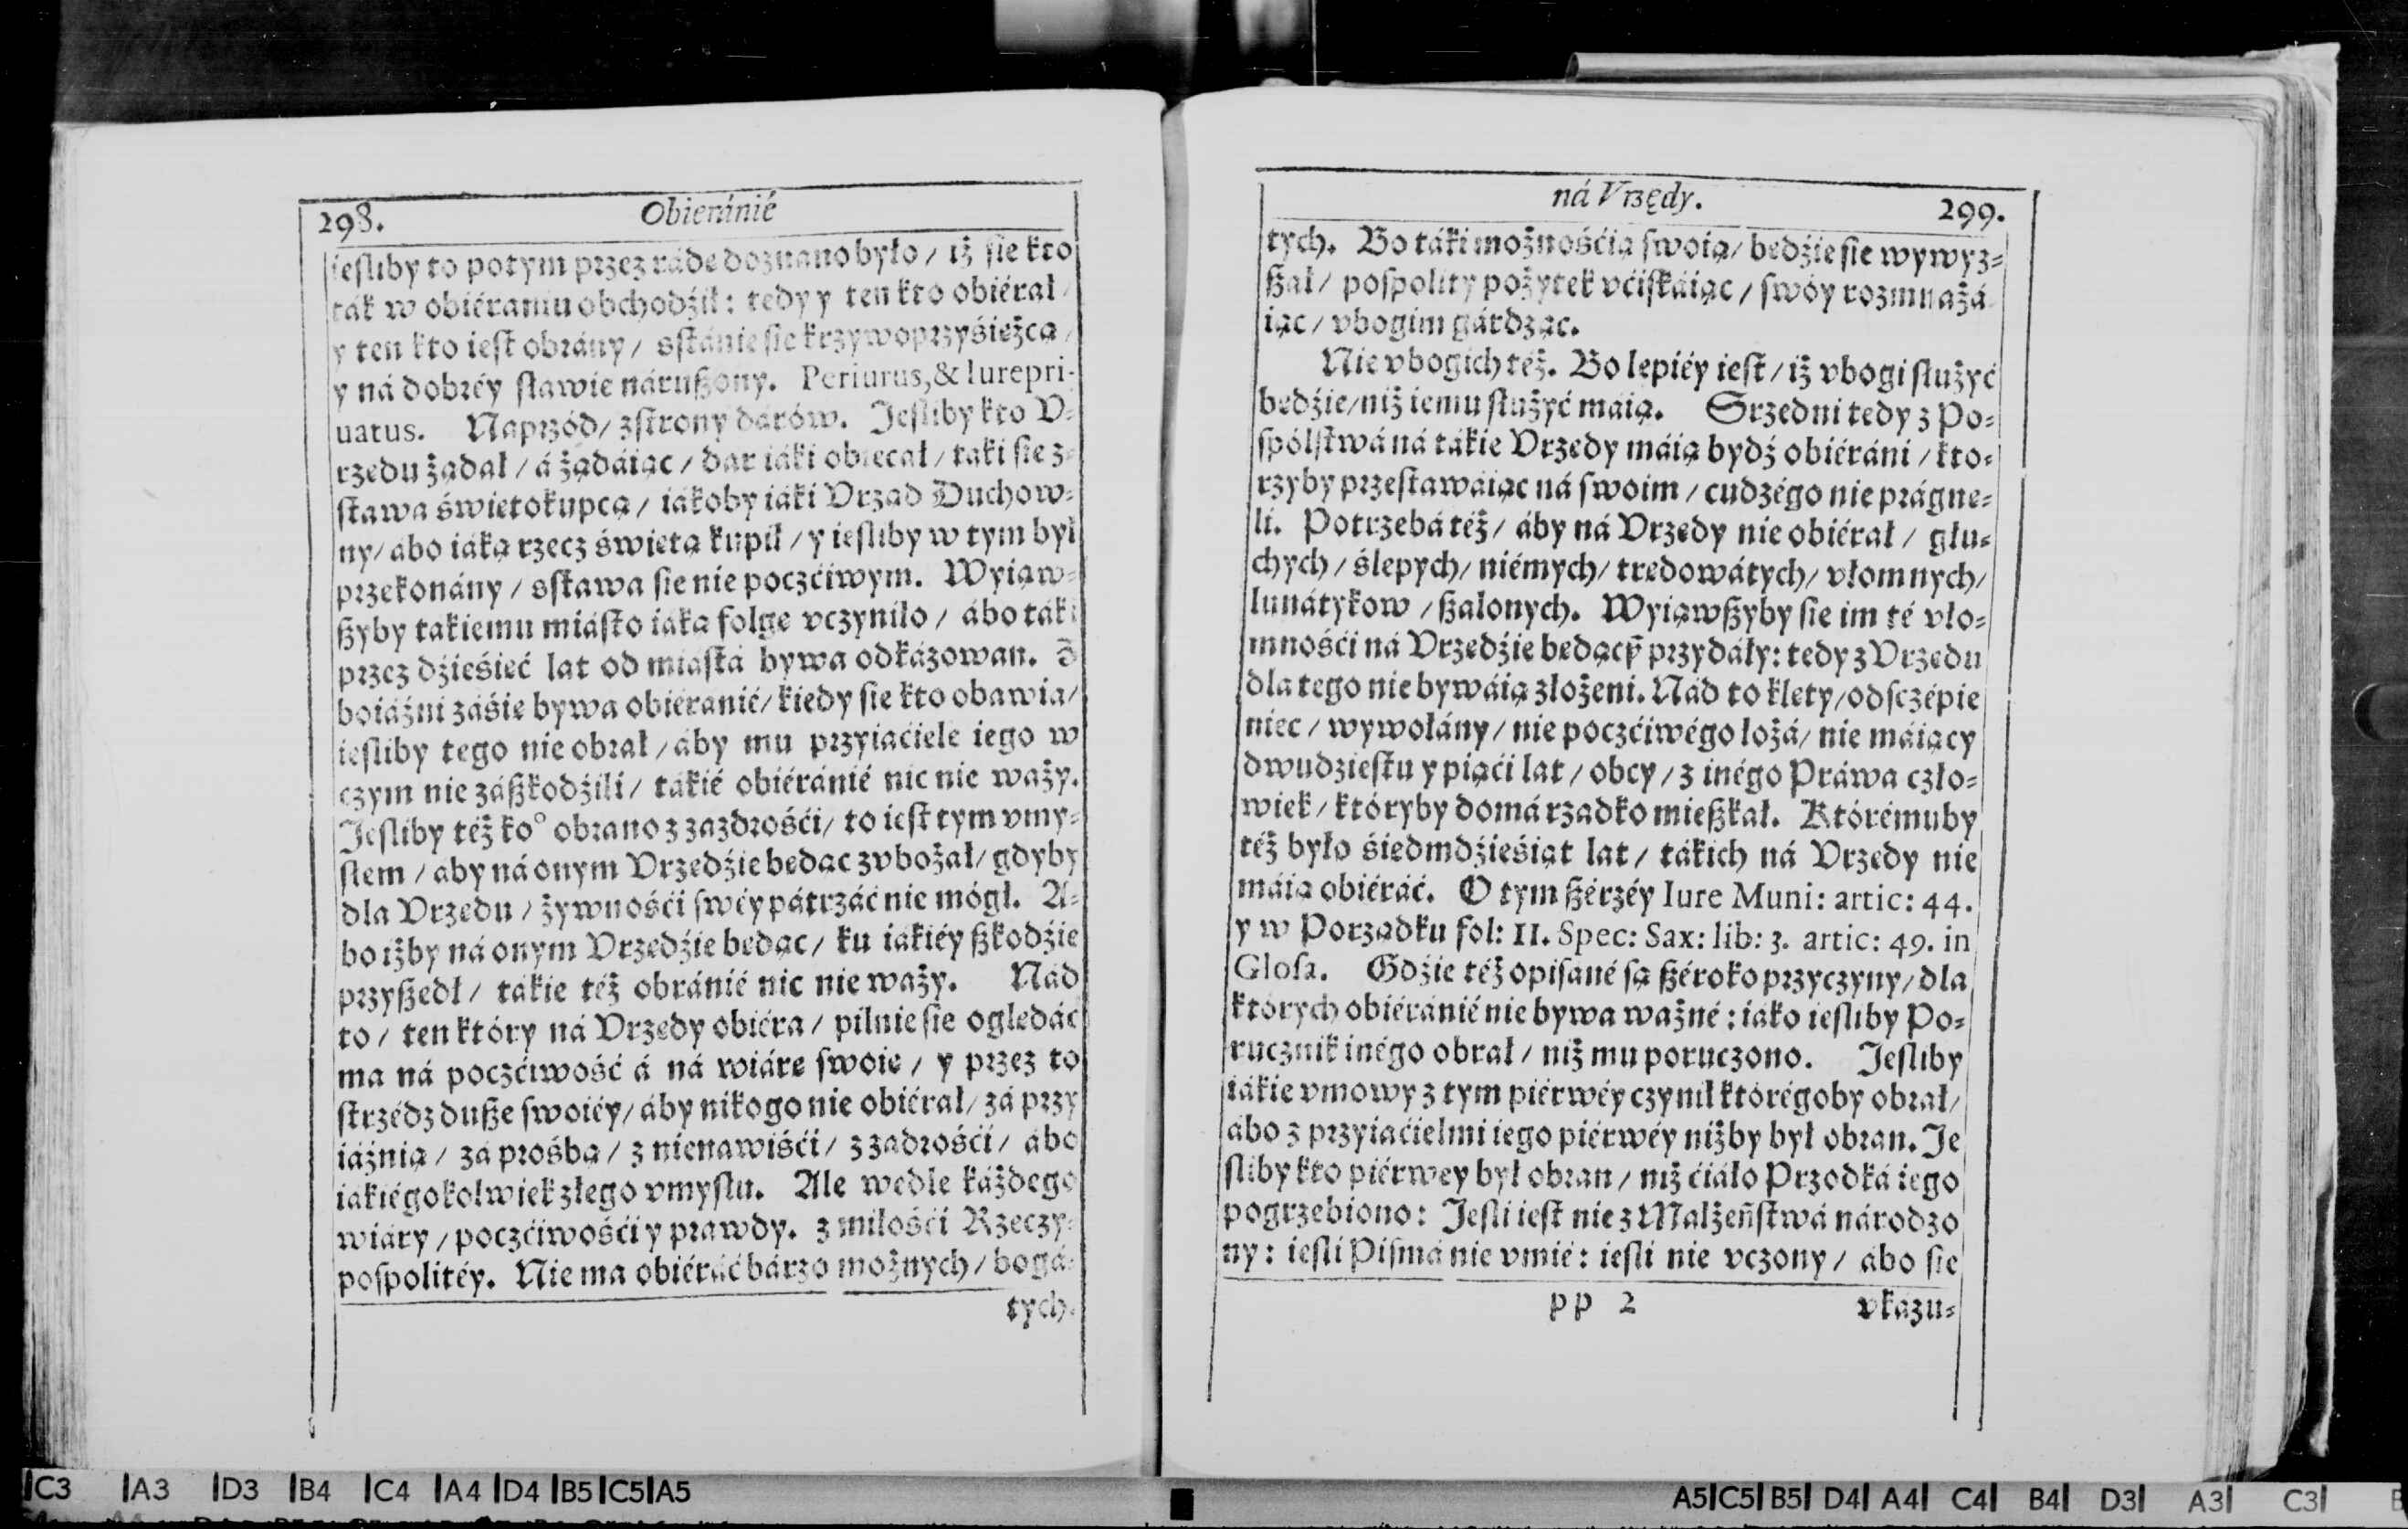 298. Obieránié
ieſliby to potym przez ráde doznano było / iż ſie kto
ták w obiéraniu obchodźił: tedy y ten kto obiérał /
y ten kto ieſt obrány / sſtánie ſie krzywoprzyśieżcą /
y ná dobréy ſławie nárußony. Periurus, & Iurepri-
uatus. Naprzód / zſtrony darów. Jeſliby kto V-
rzedu żądał / á żądáiąc / dar iáki obiecał / taki ſie z-
ſtawa świetokupcą / iákoby iáki Vrząd Duchow-
ny / ábo iáką rzecz świetą kupił / y ieſliby w tym był
przekonány / sſtawa ſie nie poczćiwym. Wyiąw-
ßyby takiemu miáſto iáką folge vczyniło / ábo táki
przez dźieśieć lat od miaſtá bywa odkázowan. Z
boiáźni záśie bywa obiéranié / kiedy ſie kto obawia /
ieſliby tego nie obrał / áby mu przyiaćiele iego w
czym nie záßkodźili / tákié obiéránié nic nie waży.
Jeſliby téż ko° obrano z zazdrośći / to ieſt tym vmy-
ſłem / aby ná onym Vrzedźie bedąc zvbożał / gdyby
dla Vrzedu / żywnośći ſwéy pátrzáć nie mógł. A-
bo iżby ná onym Vrzedźie bedąc / ku iákiéy ßkodźie
przyßedł / tákie téż obránié nic nie waży. Nád
to / ten który ná Vrzedy obiéra / pilnie ſie oglédáć
ma ná poczćiwość á ná wiáre ſwoie / y przez to
ſtrzédz duße ſwoiéy / áby nikogo nie obiérał / zá przy
iáźnią / zá prośbą / z nienawiśći / z zadrośći / ábo
iakiégokolwiek złego vmyſłu. Ale wedle káżdego
wiáry / poczćiwośći y prawdy. z miłośći Rzeczy-
poſpolitéy. Nie ma obiéráć bárzo możnych / bogá-
tych.
ná Vrzędy. 299.
tych. Bo táki możnośćią ſwoią / bedźie ſie wywyz-
ßał / poſpolity pożytek vćiſkáiąc / ſwóy rozmnażá
iąc / vbogim gárdząc.
Nie vbogich téż. Bo lepiéy ieſt / iż vbogi ſłużyć
bedźie / niż iemu ſłużyć máią. Srzedni tedy z Po-
ſpólſtwá ná tákie Vrzedy máią bydź obiéráni / kto-
rzyby przeſtawáiąc ná ſwoim / cudzégo nie prágne-
li. Potrzebá téż / áby ná Vrzedy nie obiérał / głu-
chych / ślepych / niémych / tredowátych / vłomnych /
lunátykow / ßalonych. Wyiąwßyby ſie im té vło-
mnośći ná Vrzedźie bedącỹ przydáły: tedy z Vrzedu
dla tego nie bywáią złożeni. Nád to klety / odſczépie
niec / wywołány / nie poczćiwégo łożá / nie máiący
dwudzieſtu y piąći lat / obcy / z inégo Práwa czło-
wiek / któryby domá rzadko mießkał. Którémuby
téż było śiedmdźieśiąt lat / tákich ná Vrzedy nie
máią obiéráć. O tym ßérzéy Iure Muni: artic: 44.
y w Porządku fol: II. Spec: Sax: lib: 3. artic: 49. in
Gloſa. Gdźie téż opiſané ſą ßéroko przyczyny / dla
których obiéránié nie bywa ważné: iáko ieſliby Po-
rucznik inégo obrał / niż mu poruczono. Jeſliby
iákie vmowy z tym piérwéy czynił którégoby obrał /
ábo z przyiaćielmi iego piérwéy niżby był obran. Je
ſliby kto piérwey był obran / niż ćiáło Przodká iego
pogrzebiono: Jeſli ieſt nie z Małżeñſtwá národzo
ny: ieſli Piſmá nie vmié: ieſli nie vczony / ábo ſie
pp 2 vkázu-
C3 A3 D3 B4 C4 A4 D4 B5 C5 A5
A5 C5 B5 D4 A4 C4 B4 D3 A3 C3 B